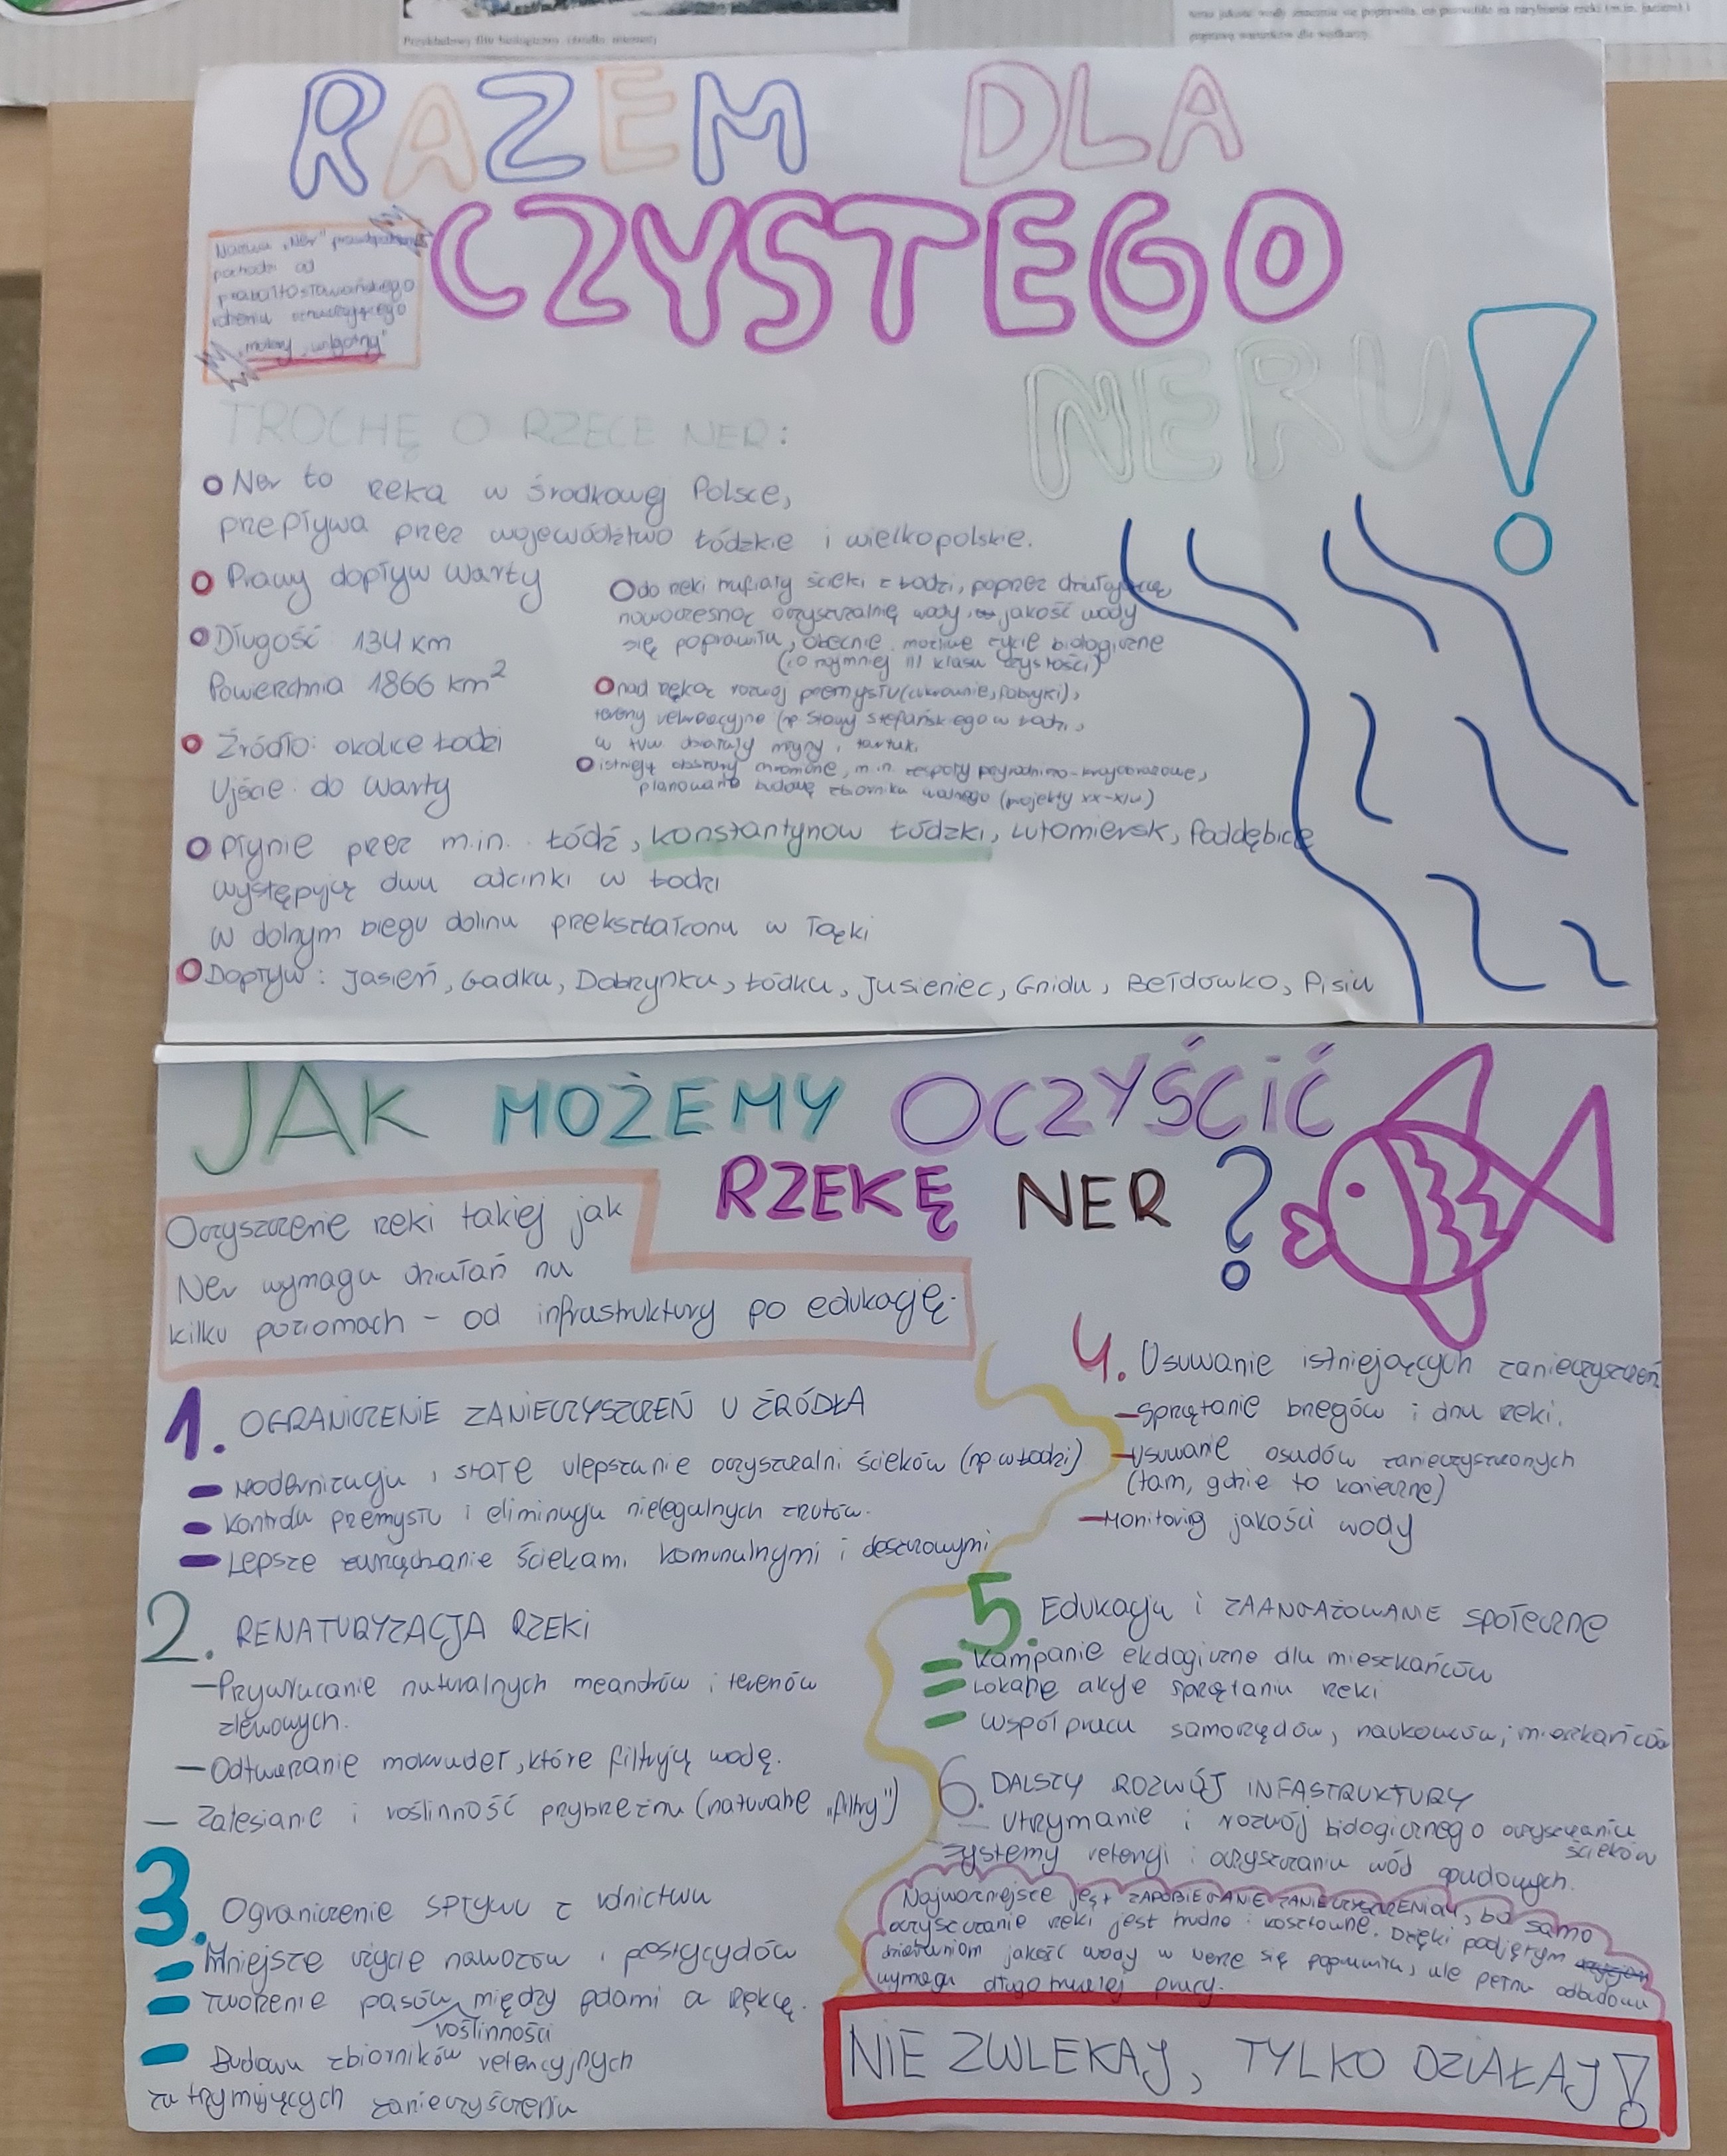 Przykładowy filtr biologiczny (źródło: internet)
teraz jakość wody znacznie się poprawiła, co pozwoliło na zarybianie rzeki (m.in. jaziem) i
poprawę warunków dla wędkarzy.
RAZEM DLA
CZYSTEGO
NERU!
Nazwa „Ner”
pochodzi od
prabałtosłowiańskiego
rdzenia oznaczającego
„mokry”, „wilgotny”
TROCHĘ O RZECE NER:
Ner to rzeka w środkowej Polsce,
przepływa przez województwo łódzkie i wielkopolskie.
Prawy dopływ Warty
Długość: 134 km
Powierzchnia 1866 km²
Źródło: okolice Łodzi
Ujście: do Warty
Do rzeki trafiały ścieki z Łodzi, poprzez działającą
nowoczesną oczyszczalnię wody, jakość wody
się poprawiła, obecnie możliwe życie biologiczne
(co najmniej III klasa czystości)
nad rzeką rozwój przemysłu (cukrownie, fabryki),
tereny rekreacyjne (np. Stawy Stefańskiego w Łodzi,
w tym działały młyny i tartaki
istnieją obszary chronione, m.in. zespoły przyrodniczo-krajobrazowe,
planowano budowę zbiornika wodnego (projekty
Płynie przez m.in. Łódź, Konstantynow Łódzki, Lutomiersk, Poddębice
występują dwa odcinki w Łodzi
W dolnym biegu dolina przekształcona w łąki
Dopływ: Jasień, Gadka, Dobrzynka, Łódka, Jasieniec, Gnida, Bełdówka, Pisia
JAK MOŻEMY OCZYŚCIĆ
RZEKĘ NER?
Oczyszczenie rzeki takiej jak
Ner wymaga działań na
kilku poziomach - od infrastruktury po edukację.
1. OGRANICZENIE ZANIECZYSZCZEŃ U ŹRÓDŁA
- Modernizacja i stałe ulepszanie oczyszczalni ścieków (np w Łodzi)
- Kontrola przemysłu i eliminacja nielegalnych zrzutów.
- Lepsze zarządzanie ściekami komunalnymi i deszczowymi
2. RENATURYZACJA RZEKI
- Przywracanie naturalnych meandrów i terenów
zlewowych.
- Odtwarzanie mokradeł, które filtrują wodę.
- Zalesianie i roślinność przybrzeżna (naturalne „filtry”)
3. Ograniczenie spływu z rolnictwa
- Mniejsze użycie nawozów i pestycydów
- Tworzenie pasów między polami a rzeką.
roślinności
- Budowa zbiorników retencyjnych
zatrzymujących zanieczyszczenia
4. Usuwanie istniejących zanieczyszczeń
- Sprzątanie brzegów i dna rzeki.
- Usuwanie osadów zanieczyszczonych
(tam, gdzie to konieczne)
- Monitoring jakości wody
5. Edukacja i ZAANGAŻOWANIE społeczne
- Kampanie ekologiczne dla mieszkańców
- Lokalne akcje sprzątania rzeki
- Współpraca samorządów, naukowców i mieszkańców
6. DALSZY ROZWÓJ INFASTRUKTURY
- Utrzymanie i rozwój biologicznego oczyszczania
ścieków
- Systemy retencji i oczyszczania wód opadowych.
Najważniejsze jest ZAPOBIEGANIE ZANIECZYSZCZENIAM, bo samo
oczyszczanie rzeki jest trudne i kosztowne. Dzięki podjętym
działaniom jakość wody w Nerze się poprawiła, ale pełna odbudowa
wymaga długotrwałej pracy.
NIE ZWLEKAJ, TYLKO DZIAŁAJ!